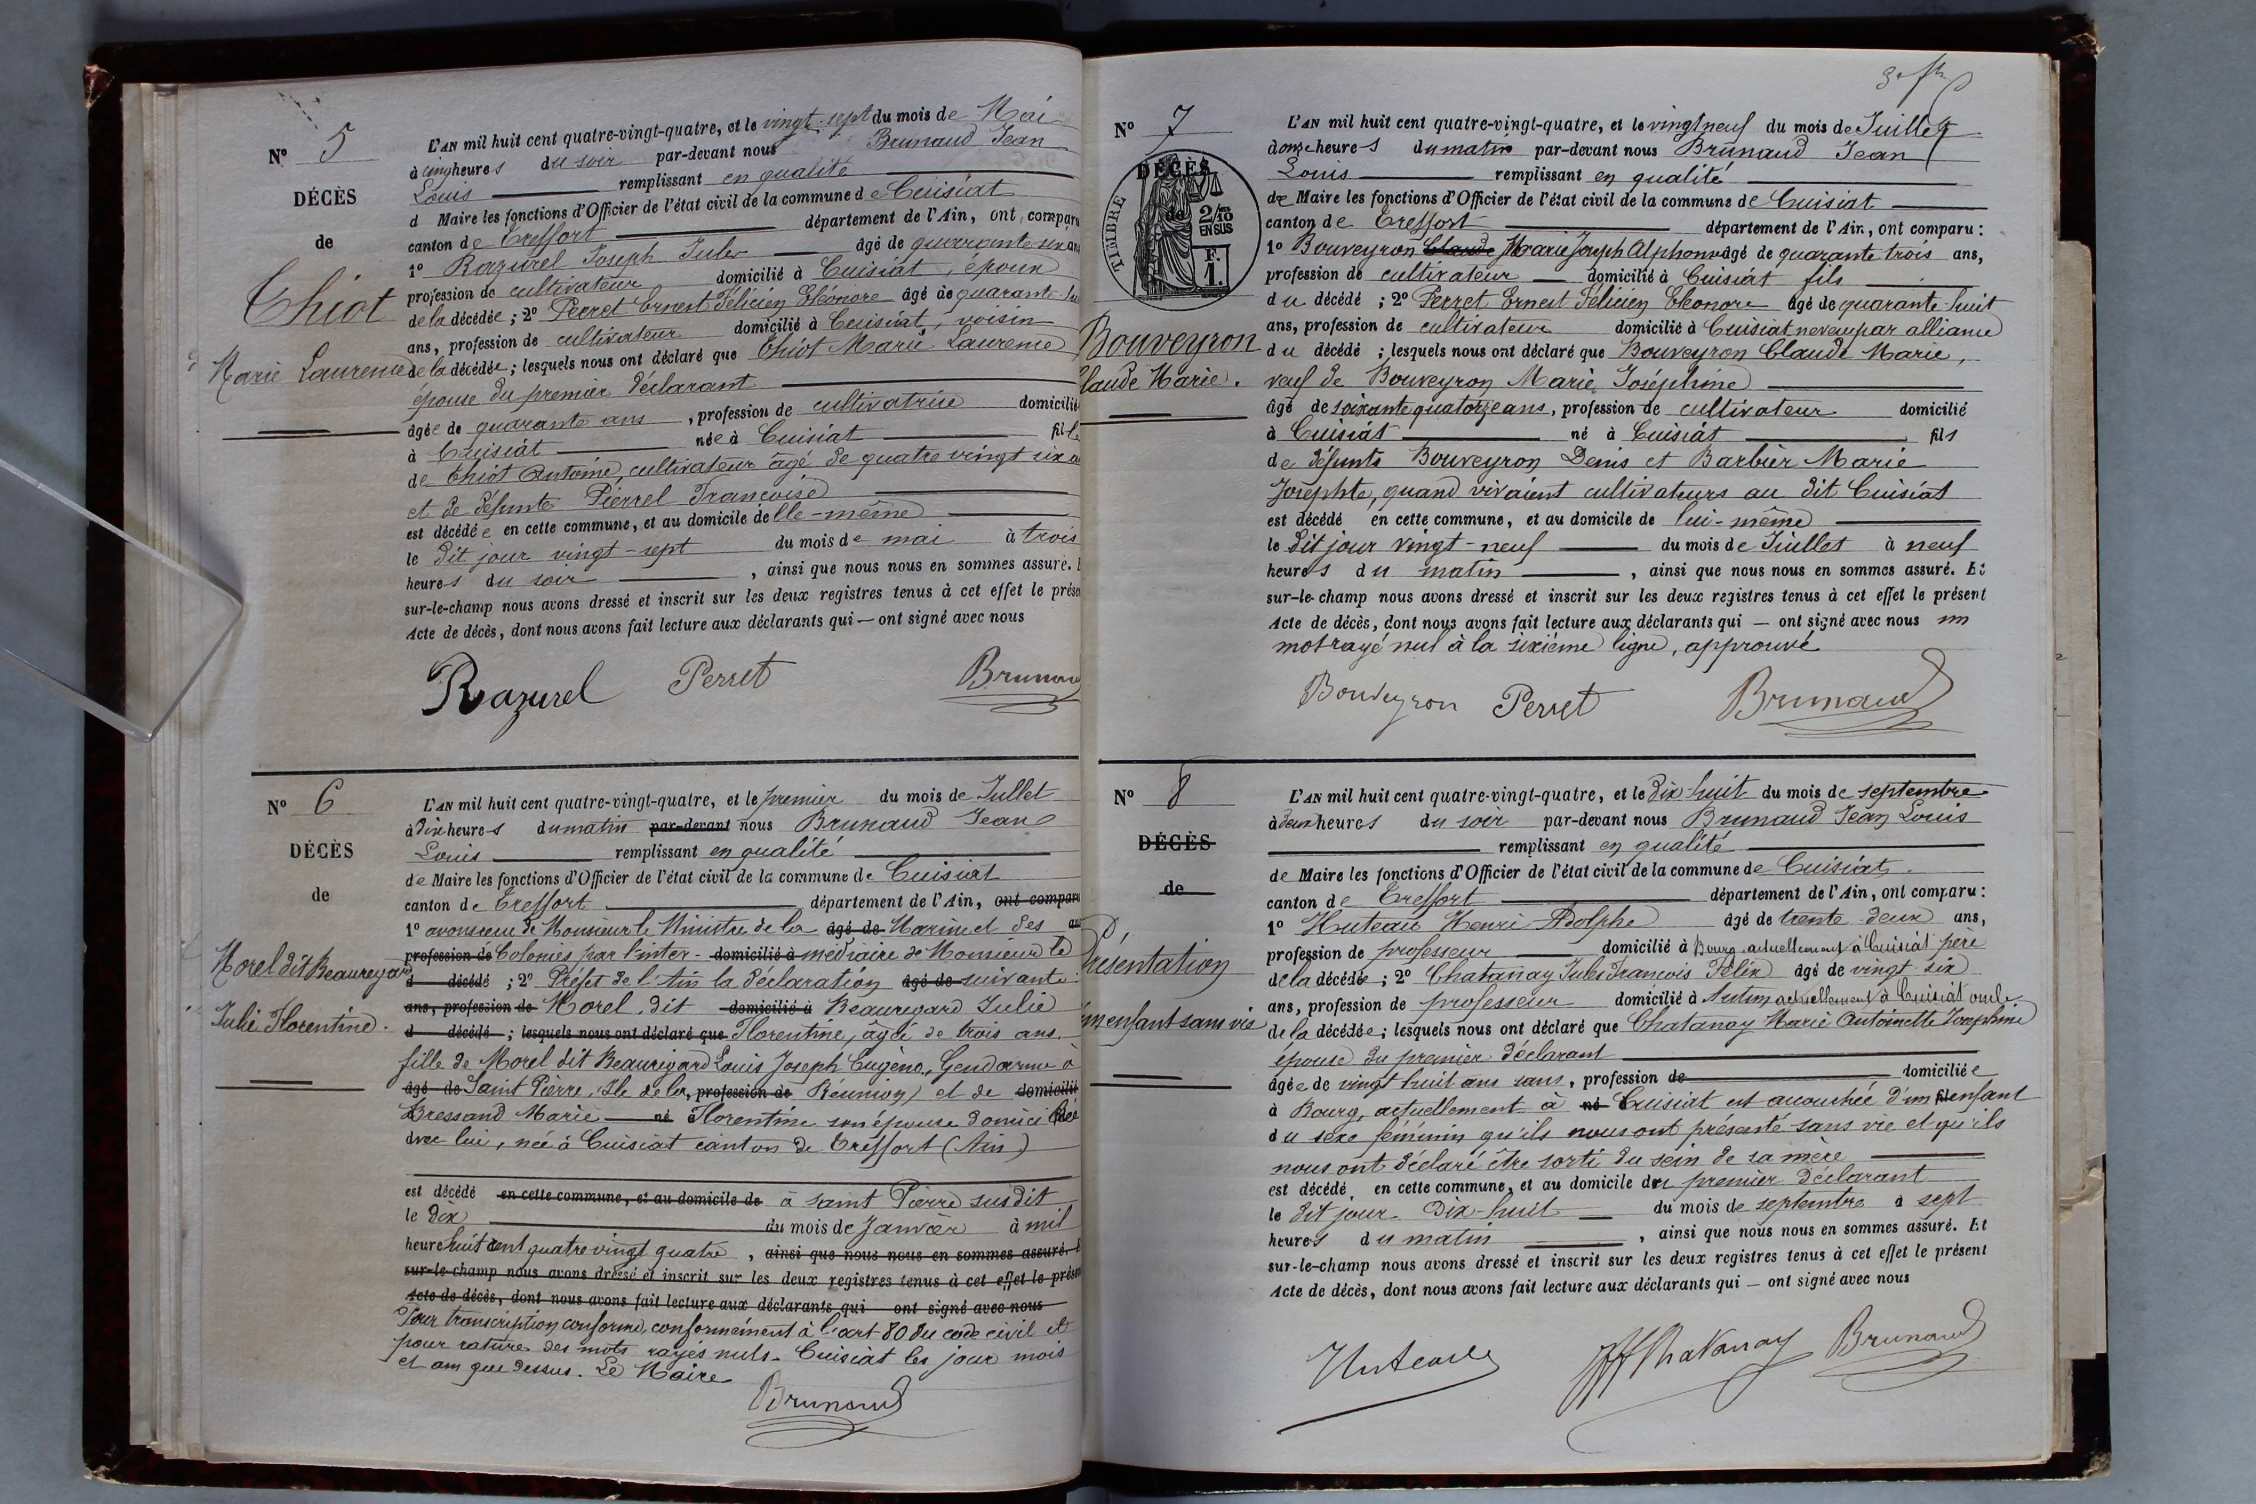 N° 5
DÉCÈS
de
Thiot
Marie Laurence
L'AN mil huit cent quatre-vingt-quatre, et le vingt-sept du mois de Mai
à cinq heures du soir par-devant nous Brunaud Jean
Louis remplissant en qualité
d Maire les fonctions d'Officier de l'état civil de la commune de Cuisiat
canton de Treffort département de l'Ain, ont comparu
1° Razurel Joseph Jules âgé de quarante six ans
profession de cultivateur domicilié à Cuisiat, époux
de la décédée ; 2° Perret Ernest Félicien Eléonore âgé de quarante-huit
ans, profession de cultivateur domicilié à Cuisiat, voisin
de la décédée ; lesquels nous ont déclaré que Thiot Marie Laurence
épouse du premier déclarant
âgée de quarante ans, profession de cultivatrice domicilié
à Cuisiat née à Cuisiat fille
de Thiot Antoine, cultivateur âgé de quatre vingt six a
et de défunte Pierrel Françoise
est décédée en cette commune, et au domicile de elle-même
le dit jour vingt-sept du mois de mai à trois
heures du soir, ainsi que nous nous en sommes assuré. E
sur-le-champ nous avons dressé et inscrit sur les deux registres tenus à cet effet le prése
Acte de décès, dont nous avons fait lecture aux déclarants qui — ont signé avec nous
Razurel Perret Brunaud
N° 6
DÉCÈS
de
Morel dit Beauregard
Julie Florentine.
L'AN mil huit cent quatre-vingt-quatre, et le premier du mois de Juillet
à dix heures du matin par-devant nous Brunaud Jean
Louis remplissant en qualité
de Maire les fonctions d'Officier de l'état civil de la commune de Cuisiat
canton de Treffort département de l'Ain, ont comparu
1° avons reçu de Monsieur le Ministre de la âgé de Marine et des ans
profession de Colonies par l'inter- domicilié à médiaire de Monsieur le
d décédé ; 2° Préfet de l'Ain la déclaration âgé de suivante :
ans, profession de Morel dit domicilié à Beauregard Julie
d décédé ; lesquels nous ont déclaré que Florentine, âgée de trois ans.
fille de Morel dit Beauregard Louis Joseph Eugène, Gendarme à
âgé de Saint Pierre, Ile de la, profession de Réunion, et de domicilié
Bressand Marie né Florentine son épouse domiciliée
avec lui, née à Cuisiat canton de Treffort (Ain)
est décédé en cette commune, et au domicile de à saint Pierre susdit
le dix du mois de Janvier à mil
heure huit cent quatre vingt quatre, ainsi que nous nous en sommes assuré. E
sur-le-champ nous avons dressé et inscrit sur les deux registres tenus à cet effet le présen
Acte de décès, dont nous avons fait lecture aux déclarants qui ont signé avec nous
Pour transcription conforme, conformément à l'art 80 du code civil et
pour rature des mots rayés nuls. Cuisiat les jour mois
et an que dessus. Le Maire
Brunaud
N° 7
TIMBRE
DÉCÈS
de
2/10 EN SUS
F. 1.
Bouveyron
Claude Marie.
L'AN mil huit cent quatre-vingt-quatre, et le vingt neuf du mois de Juillet
à onze heures du matin par-devant nous Brunaud Jean
Louis remplissant en qualité
de Maire les fonctions d'Officier de l'état civil de la commune de Cuisiat
canton de Treffort département de l'Ain, ont comparu :
1° Bouveyron Claude Marie Joseph Alphonse âgé de quarante trois ans,
profession de cultivateur domicilié à Cuisiat fils
du décédé ; 2° Perret Ernest Félicien Eléonore âgé de quarante huit
ans, profession de cultivateur domicilié à Cuisiat neveu par alliance
du décédé ; lesquels nous ont déclaré que Bouveyron Claude Marie,
veuf de Bouveyron Marie Joséphine
âgé de soixante quatorze ans, profession de cultivateur domicilié
à Cuisiat né à Cuisiat fils
de défunts Bouveyron Denis et Barbier Marie
Josephte, quand vivaient cultivateurs au dit Cuisiat
est décédé en cette commune, et au domicile de lui-même
le dit jour vingt-neuf du mois de Juillet à neuf
heures du matin, ainsi que nous nous en sommes assuré. Et
sur-le-champ nous avons dressé et inscrit sur les deux registres tenus à cet effet le présent
Acte de décès, dont nous avons fait lecture aux déclarants qui — ont signé avec nous un
mot rayé nul à la sixième ligne, approuvé
Bouveyron Perret Brunaud
N° 8
DÉCÈS
de
Présentation
d'un enfant sans vie
L'AN mil huit cent quatre-vingt-quatre, et le dix-huit du mois de septembre
à deux heures du soir par-devant nous Brunaud Jean Louis
remplissant en qualité
de Maire les fonctions d'Officier de l'état civil de la commune de Cuisiat
canton de Treffort département de l'Ain, ont comparu :
1° Huteau Henri Adolphe âgé de trente deux ans,
profession de professeur domicilié à Bourg actuellement à Cuisiat père
de la décédée ; 2° Chatanay Jules François Félix âgé de vingt six
ans, profession de professeur domicilié à Autun actuellement à Cuisiat oncle
de la décédée ; lesquels nous ont déclaré que Chatanay Marie Antoinette Joséphine
épouse du premier déclarant
âgée de vingt huit ans sans, profession de domiciliée
à Bourg, actuellement à né Cuisiat est accouchée d'un fil enfant
du sexe féminin qu'ils nous ont présenté sans vie et qu'ils
nous ont déclaré être sorti du sein de sa mère
est décédé en cette commune, et au domicile du premier déclarant
le dit jour dix-huit du mois de septembre à sept
heures du matin, ainsi que nous nous en sommes assuré. Et
sur-le-champ nous avons dressé et inscrit sur les deux registres tenus à cet effet le présent
Acte de décès, dont nous avons fait lecture aux déclarants qui — ont signé avec nous
Huteau JF Chatanay Brunaud